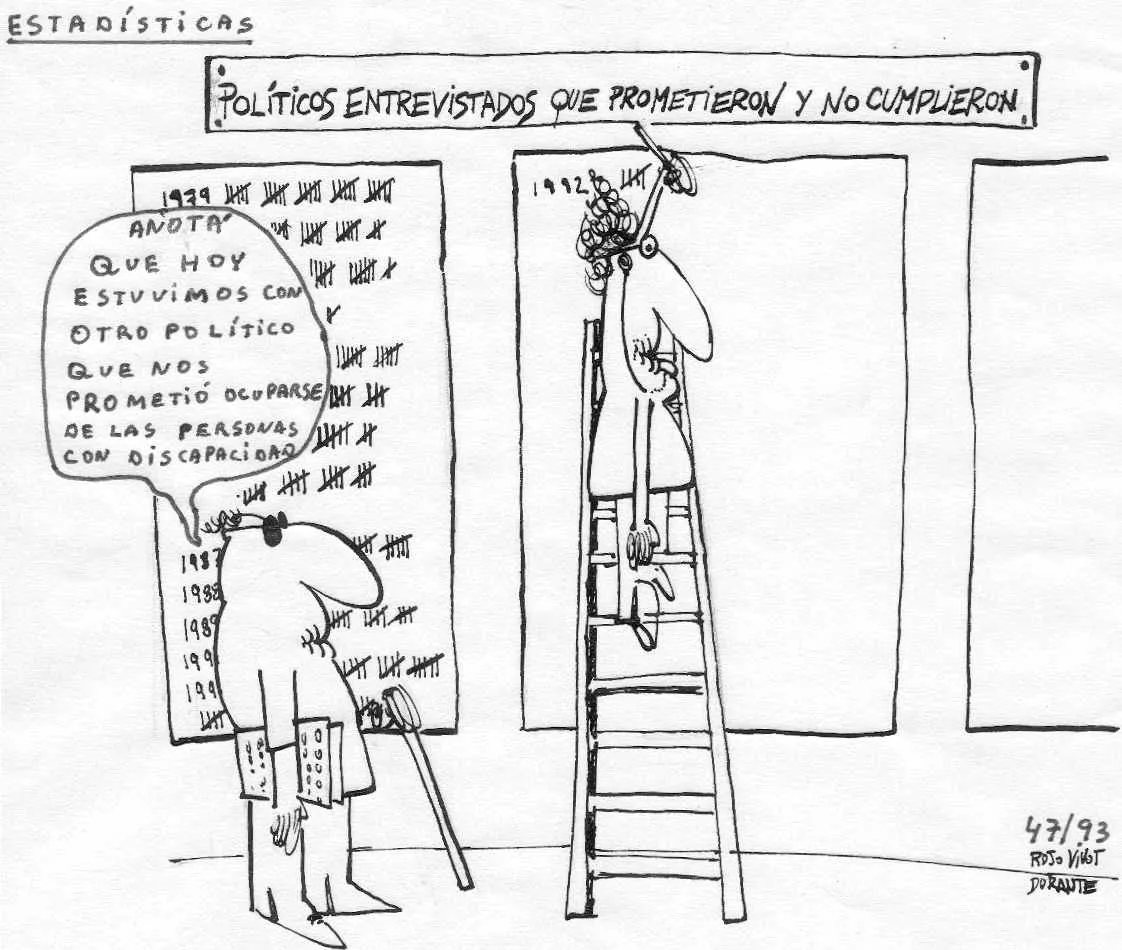 ESTADÍSTICAS
POLÍTICOS ENTREVISTADOS QUE PROMETIERON Y NO CUMPLIERON
1979
1992
ANOTÁ
QUE HOY
ESTUVIMOS CON
OTRO POLÍTICO
QUE NOS
PROMETIÓ OCUPARSE
DE LAS PERSONAS
CON DISCAPACIDAD
1987
1988
1989
199
199
47/93
ROJO VIVOT
DURANTE